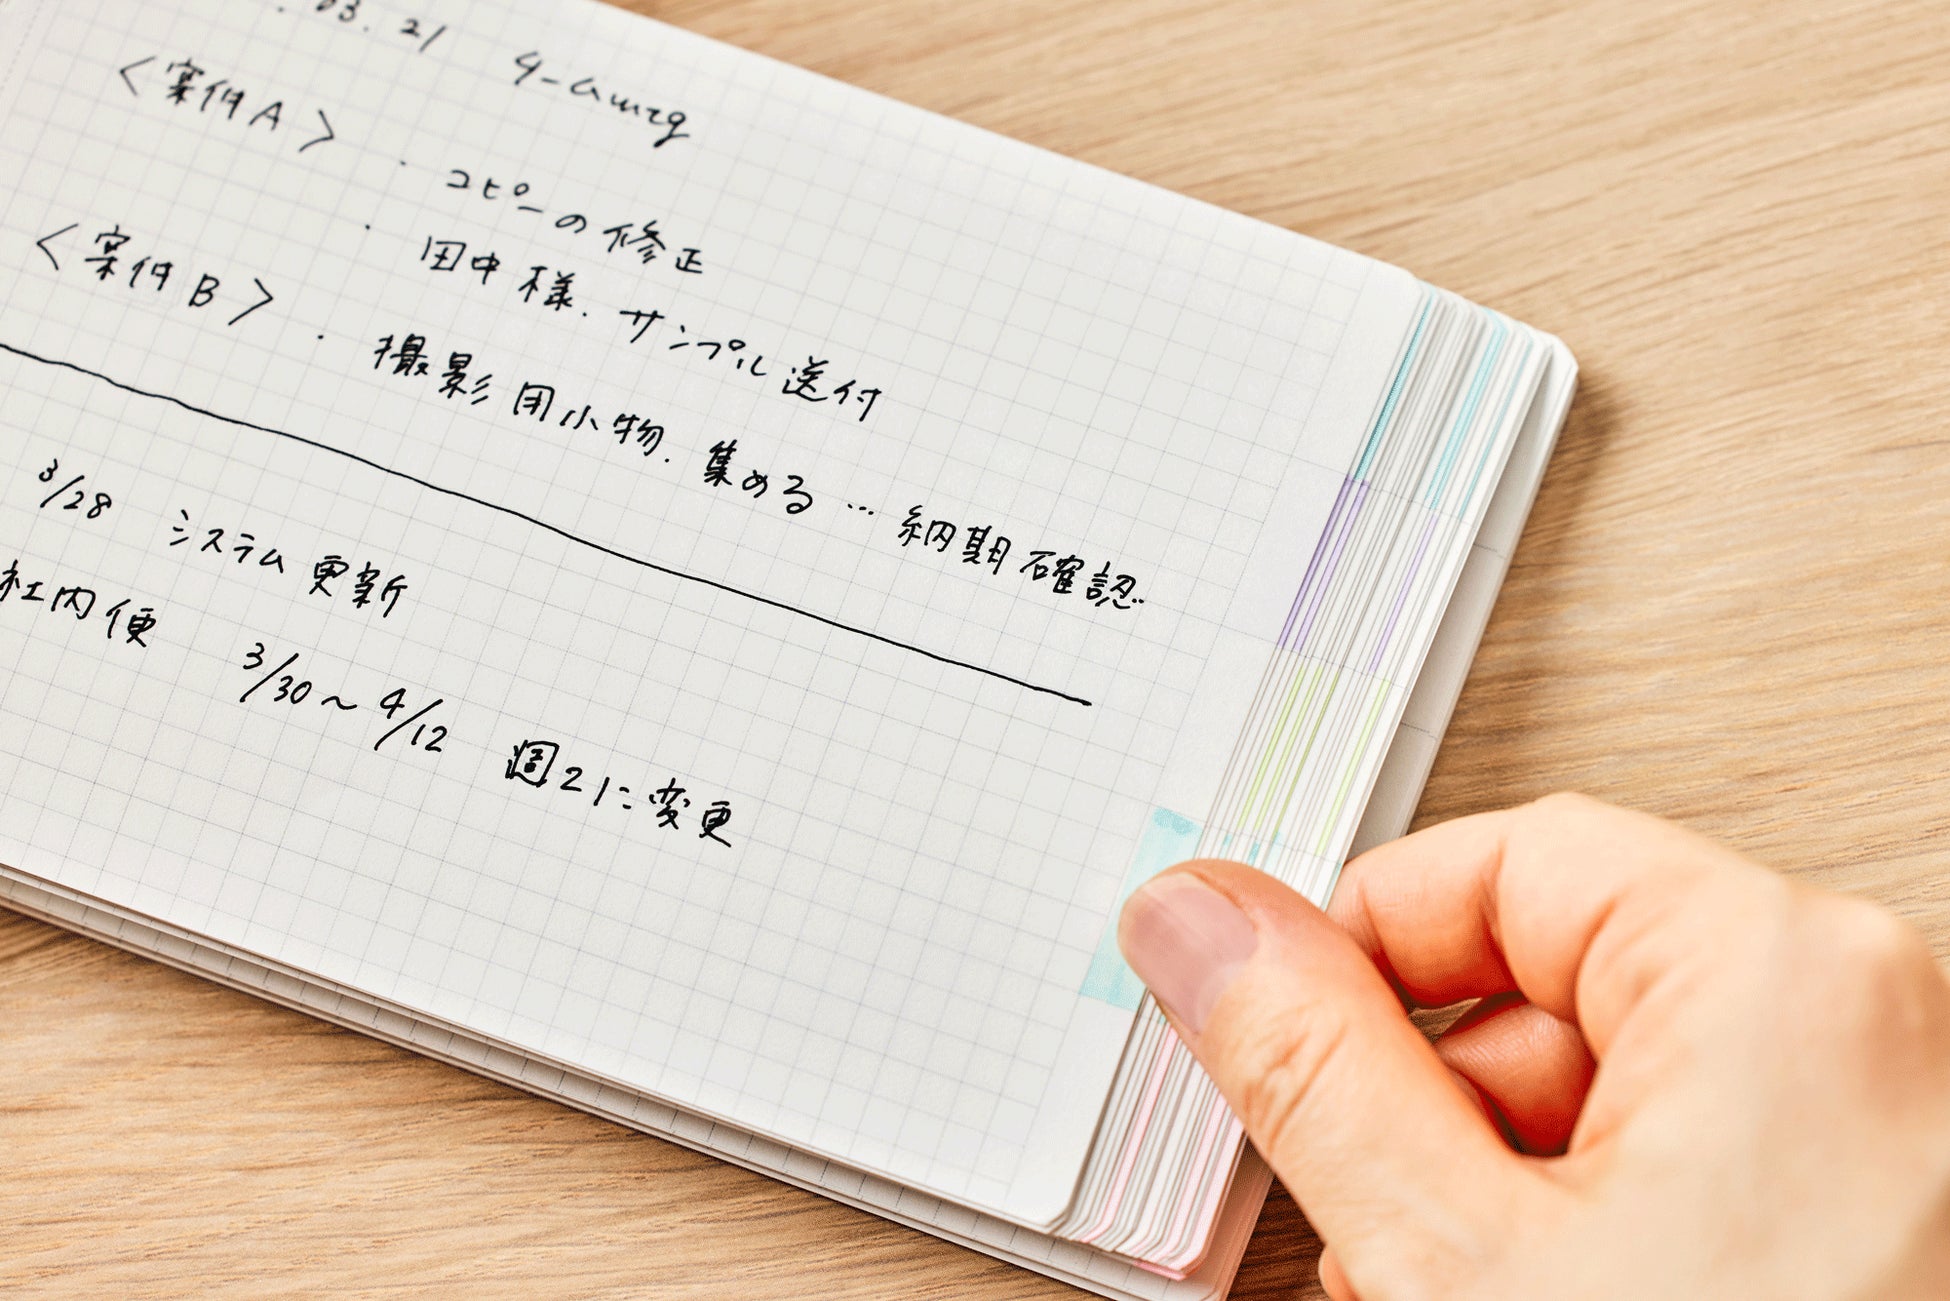 .03.21 チームmtg
<案件A> ・コピーの修正
・田中様.サンプル送付
<案件B> ・撮影用小物.集める…納期確認.
3/28 システム更新
社内便 3/30~4/12 週2に変更